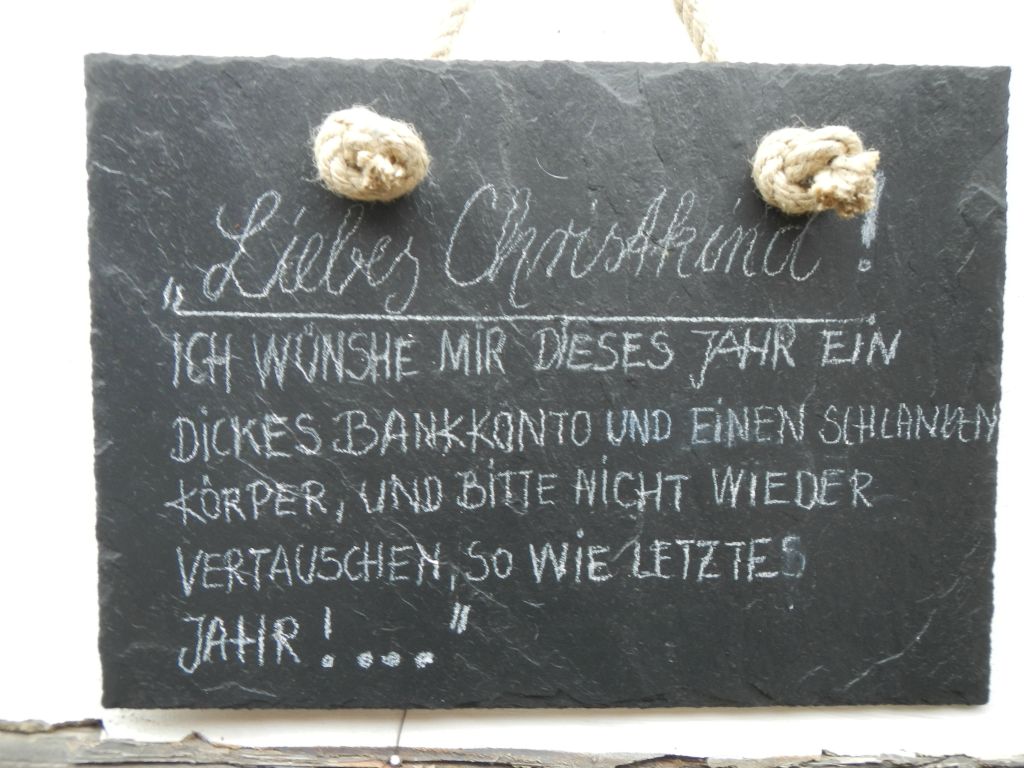 „Liebes Christkind!
ICH WÜNSHE MIR DIESES JAHR EIN
DICKES BANKKONTO UND EINEN SCHLANKEN
KÖRPER, UND BITTE NICHT WIEDER
VERTAUSCHEN, SO WIE LETZTES
JAHR!...."